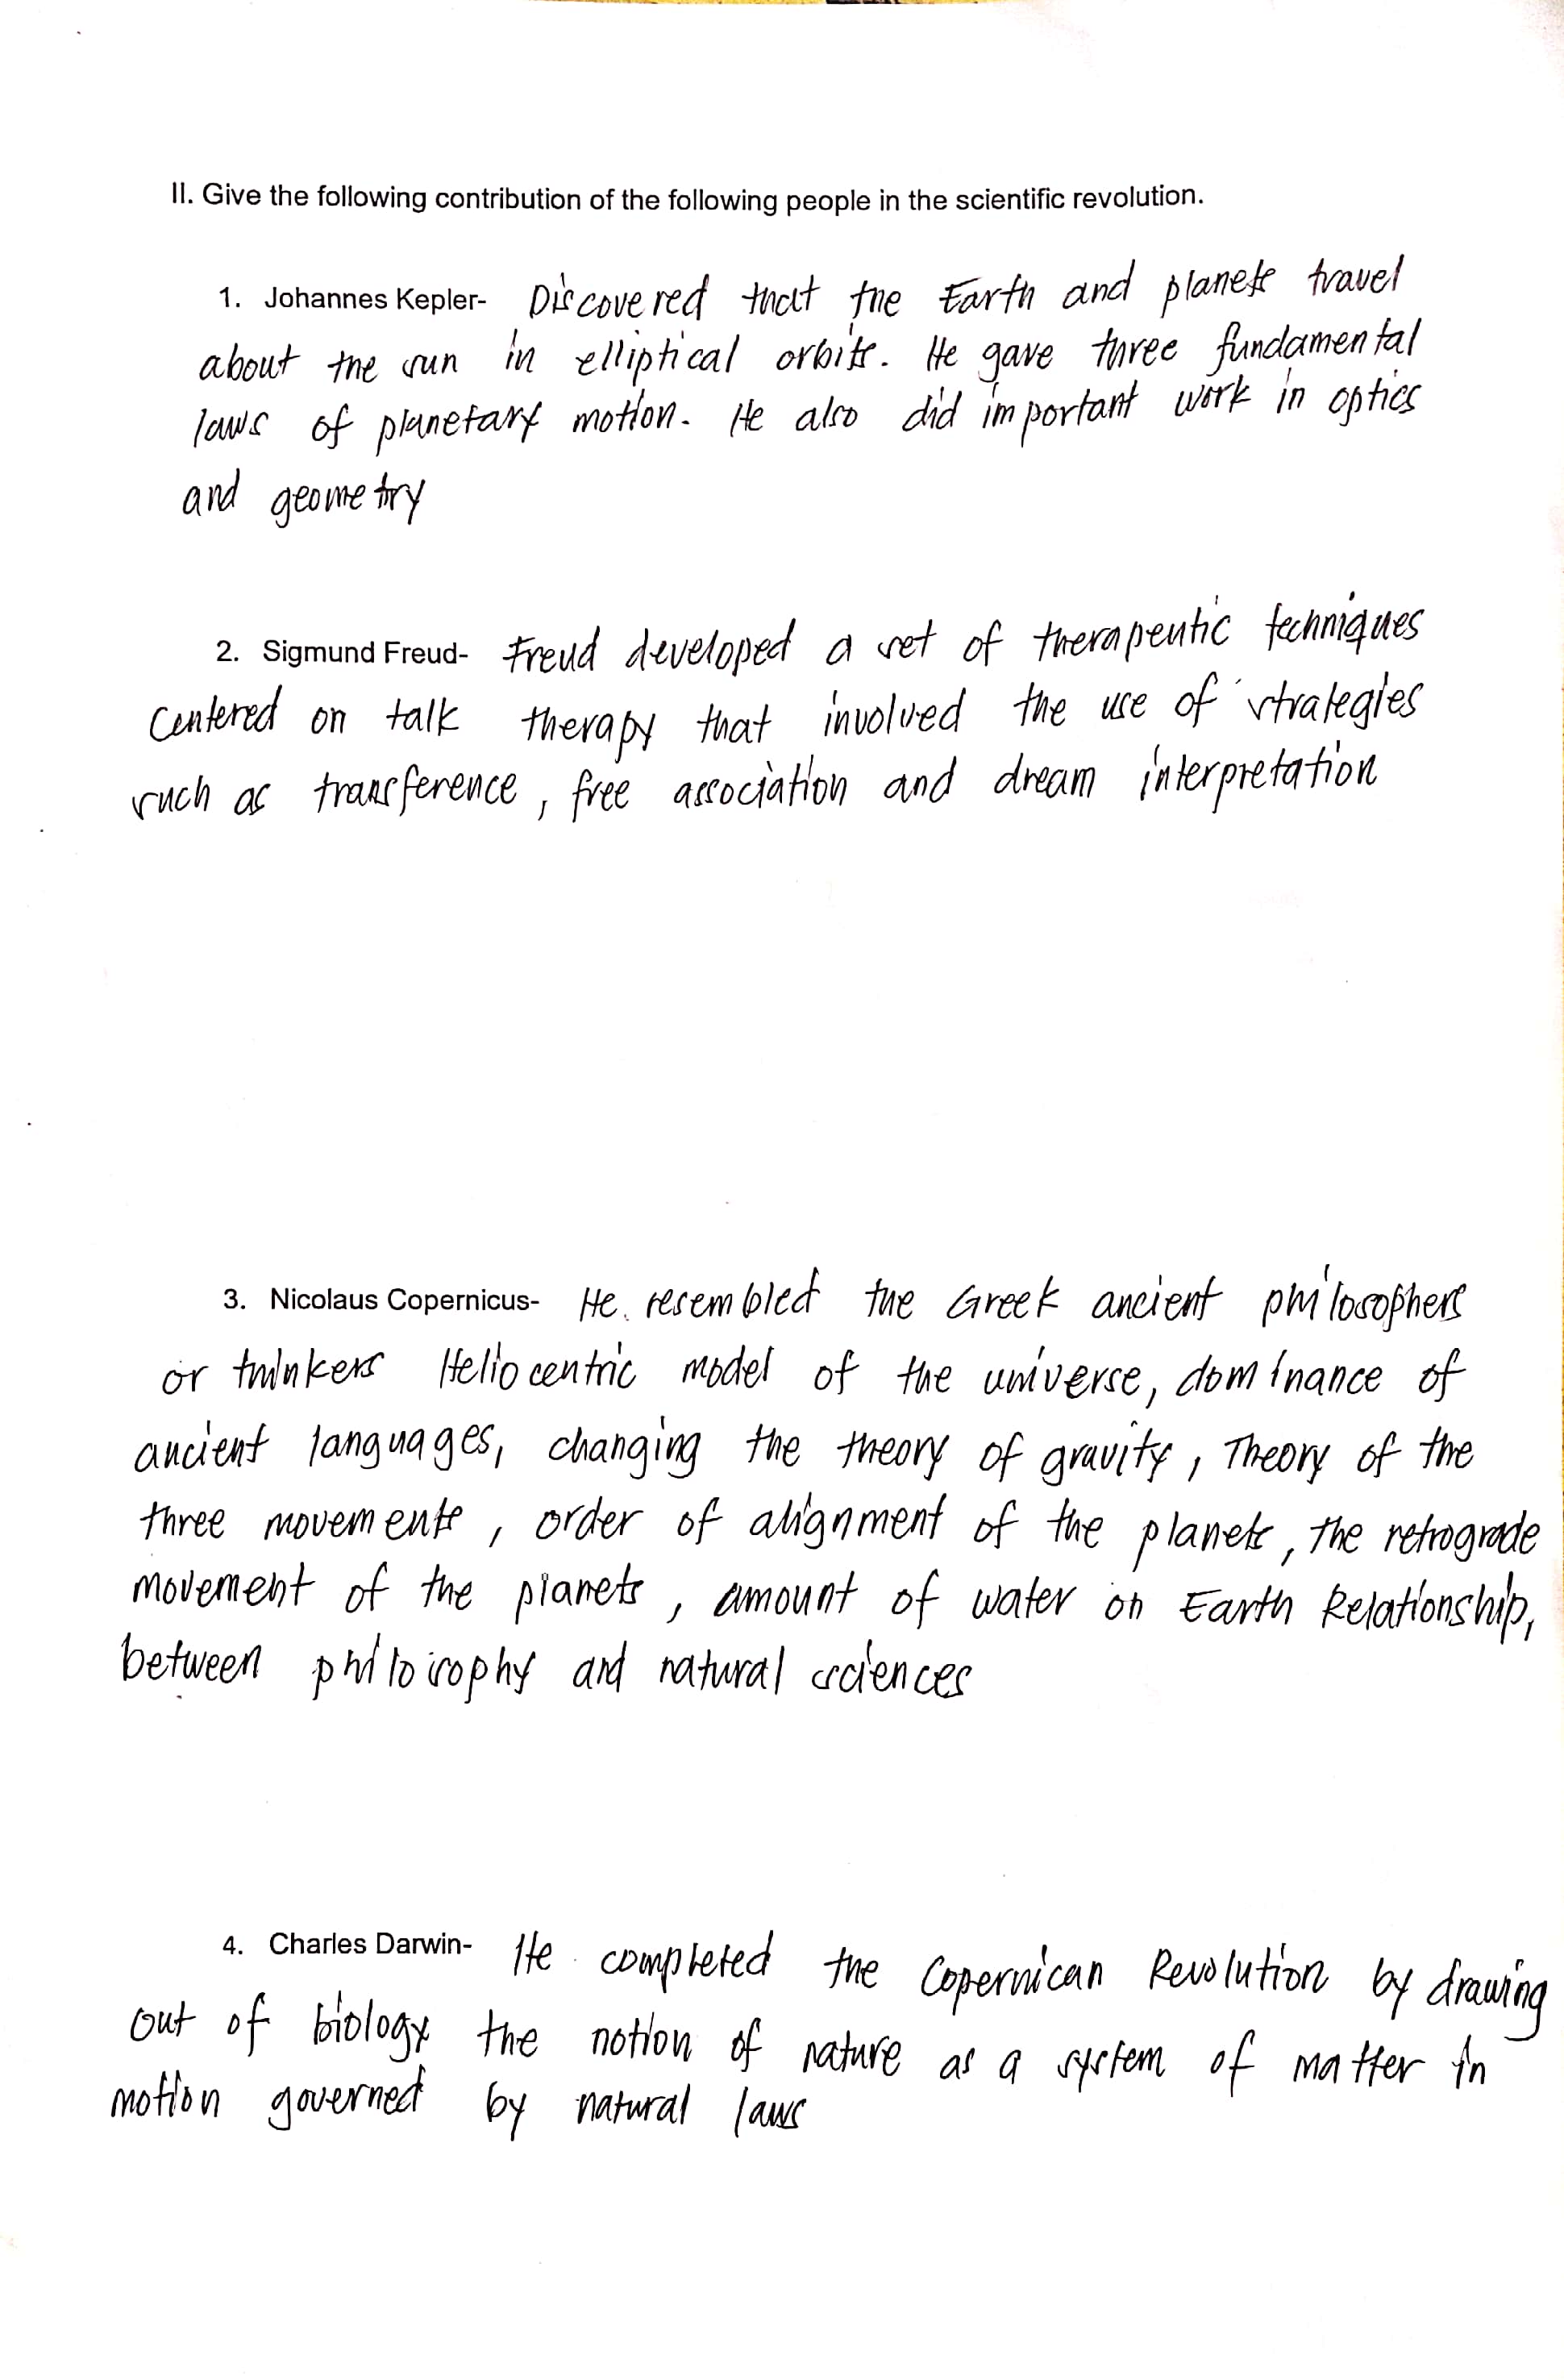 II. Give the following contribution of the following people in the scientific revolution.
1. Johannes Kepler- Discovered that the Earth and planets travel
about the sun in elliptical orbits. He gave three fundamental
laws of planetary motion. He also did important work in optics
and geometry
2. Sigmund Freud- Freud developed a set of therapeutic techniques
Centered on talk therapy that involved the use of strategies
such as transference, free association and dream interpretation
3. Nicolaus Copernicus- He resembled the Greek ancient philosophers
or thinkers Heliocentric model of the universe, dominance of
ancient languages, changing the theory of gravity, Theory of the
three movements, order of alignment of the planets, the retrograde
movement of the planets, amount of water on Earth Relationship,
between philosophy and natural sciences
4. Charles Darwin- He completed the Copernican Revolution by drawing
out of biology the notion of nature as a system of matter in
motion governed by natural laws